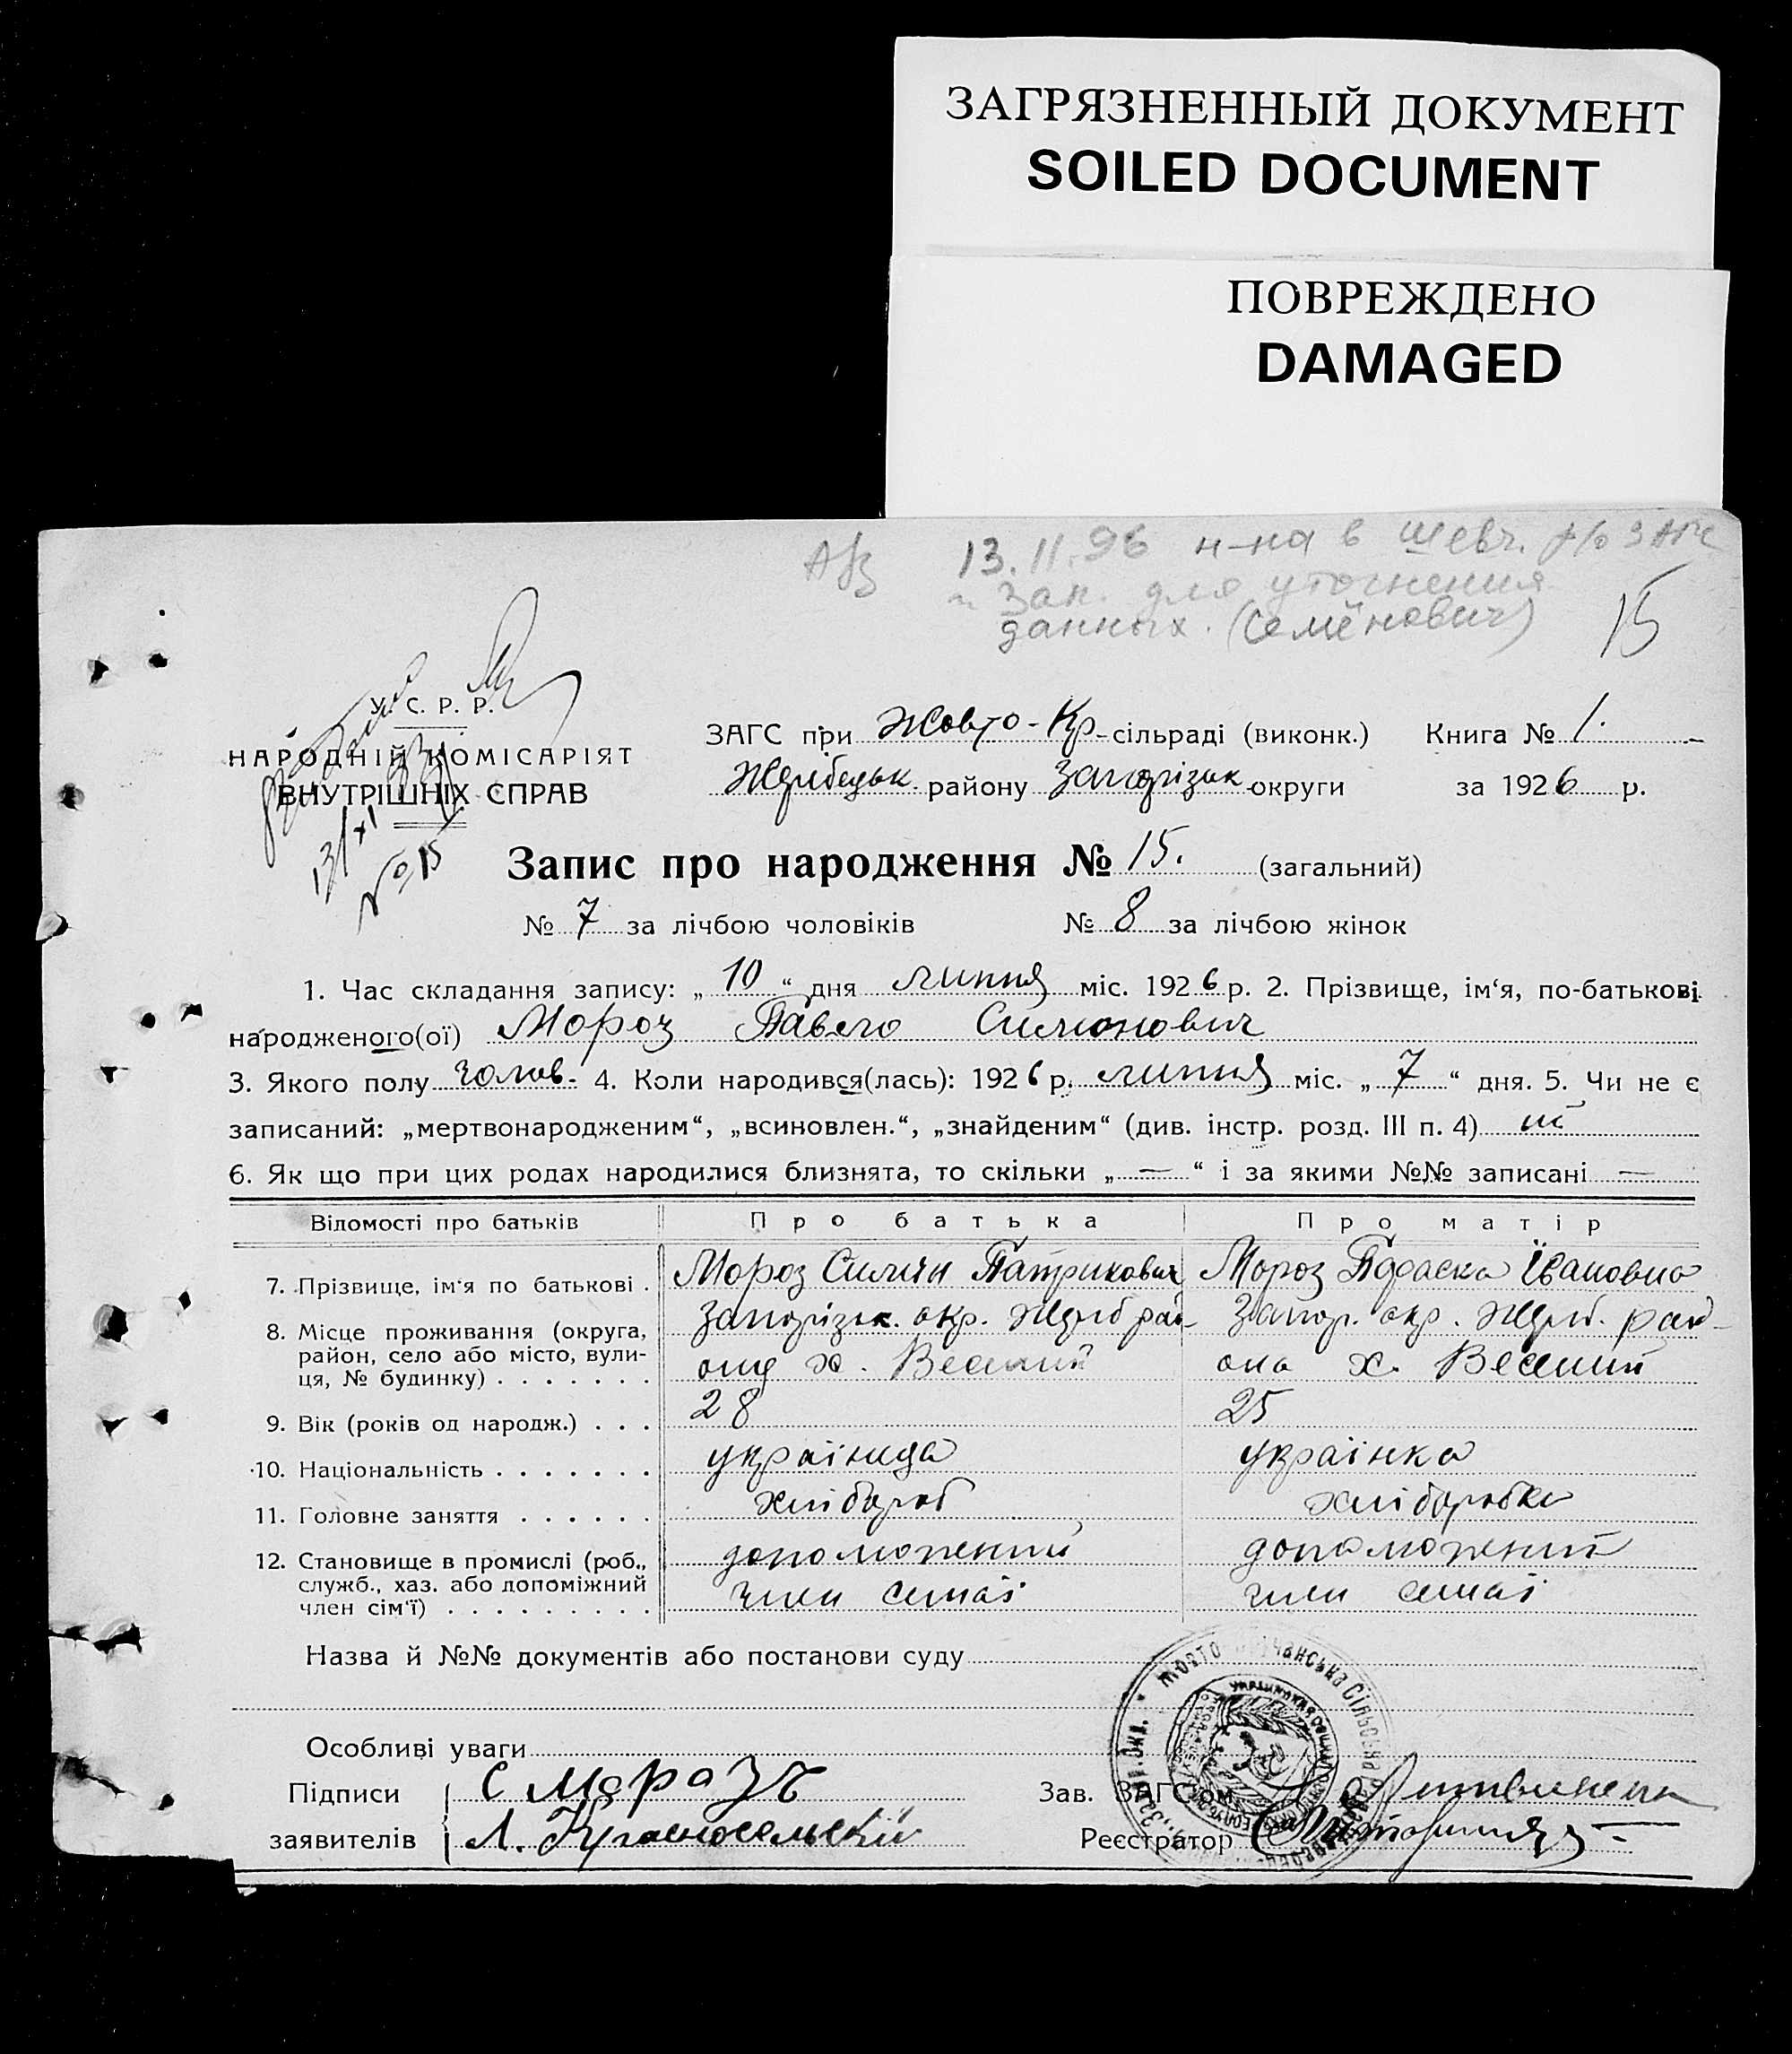 ЗАГРЯЗНЕННЫЙ ДОКУМЕНТ
SOILED DOCUMENT
ПОВРЕЖДЕНО
DAMAGED
13.11.96 н-на в Шевч. р/о ЗАГС
зап. для уточнения
данных. (Семёнович)
15
У. С. Р. Р.
НАРОДНІЙ КОМІСАРІЯТ
ВНУТРІШНІХ СПРАВ
13/XI
№ 15
ЗАГС при Жовто-Кр-сільраді (виконк.) Книга № 1.
Жеребецьк. району Запорізьк округи за 1926 р.
Запис про народження № 15. (загальний)
№ 7 за лічбою чоловіків № 8 за лічбою жінок
1. Час складання запису: „10“ дня липня міс. 1926 р. 2. Прізвище, ім‘я, по-батькові
народженого(ої) Мороз Павло Симонович
3. Якого полу чолов. 4. Коли народився(лась): 1926 р. липня міс. „7“ дня. 5. Чи не є
записаний: „мертвонародженим“, „всиновлен.“, „знайденим“ (див. інстр. розд. III п. 4) ні
6. Як що при цих родах народилися близнята, то скільки „—“ і за якими №№ записані —
Відомості про батьків Про батька Про матір
7. Прізвище, ім‘я по батькові . Мороз Симон Патрикович Мороз Параска Івановна
8. Місце проживання (округа, Запорізьк. окр. Жереб рай- Запор. окр. Жереб. рай-
район, село або місто, вули- ону х. Веселий она х. Веселий
ця, № будинку) . . . . . . .
9. Вік (років од народж.) . . . 28 25
10. Національність . . . . . . . українець українка
11. Головне заняття . . . . . . хлібороб хліборобка
12. Становище в промислі (роб., допоможений допоможений
служб., хаз. або допоміжний член семьі член семьі
член сім‘ї) . . . . . . . . .
Назва й №№ документів або постанови суду
Особливі уваги
Підписи С Морозъ Зав. ЗАГСом Литвиненко
заявителів Л. Красносельскій Реєстратор